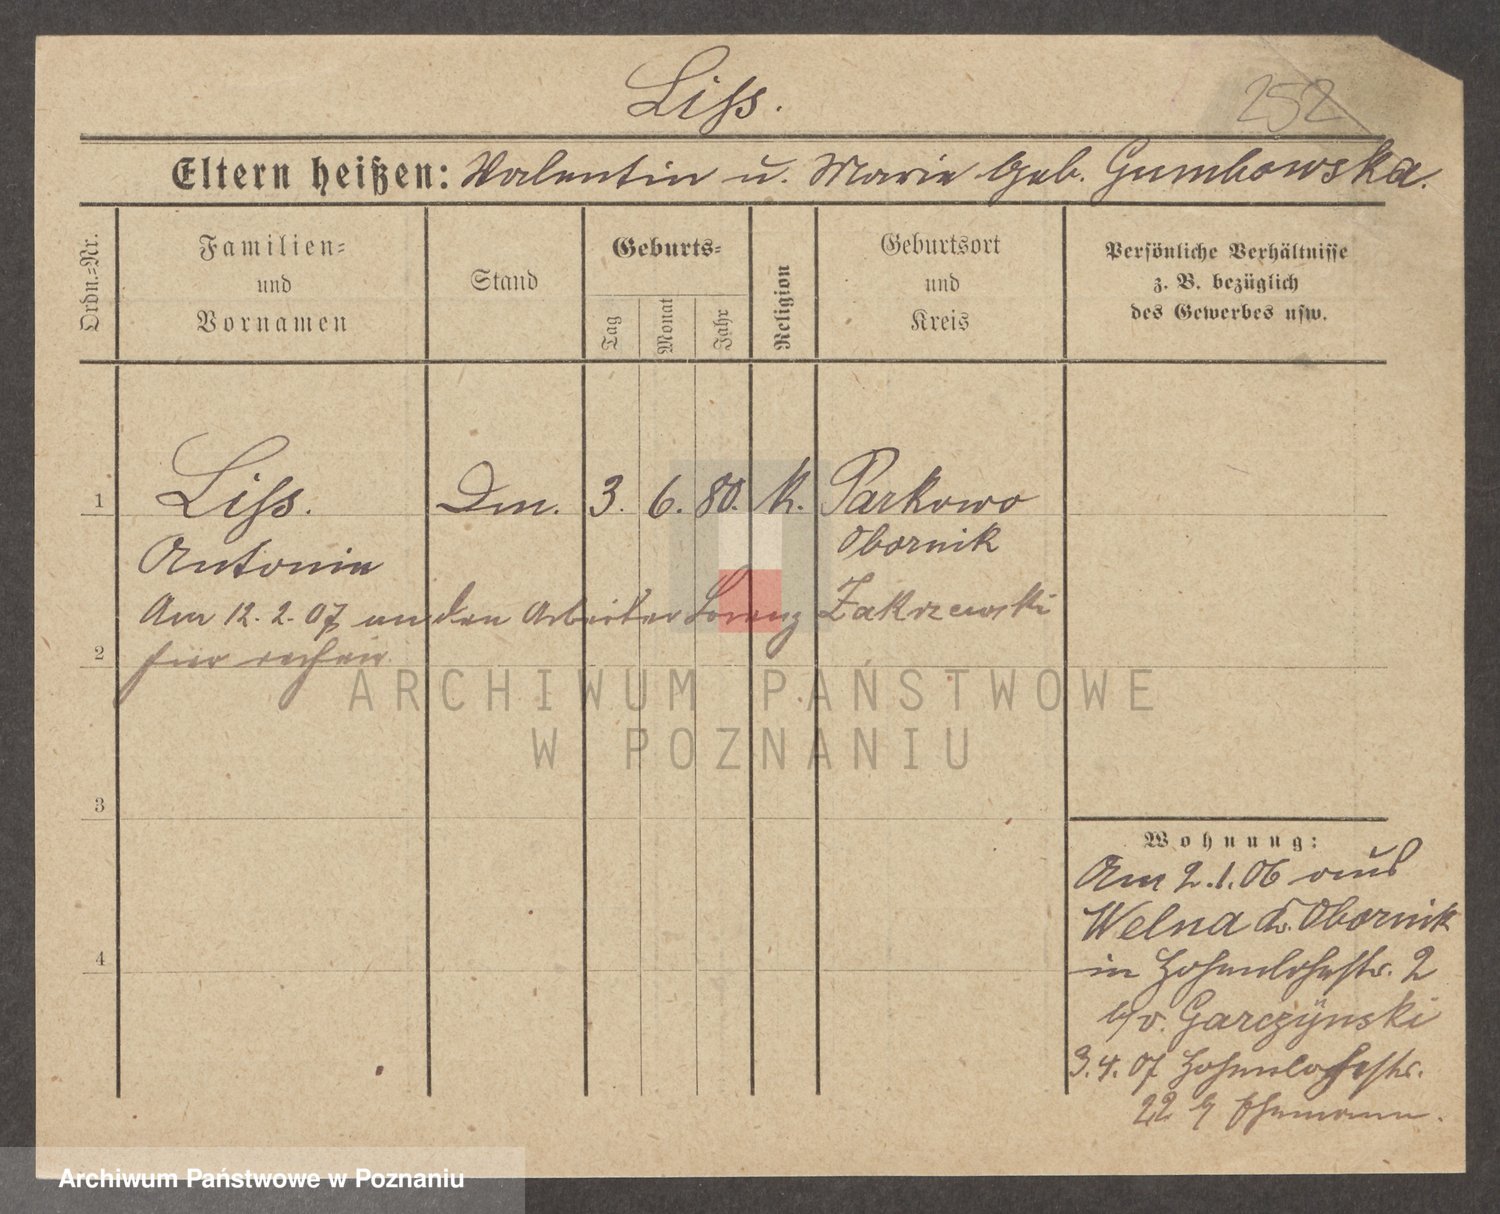 Liss.
252
Eltern heißen: Valentin u. Marie geb. Gumbowska.
Ordn.=Nr.
Familien=
und
Vornamen
Stand
Geburts=
Tag
Monat
Jahr
Religion
Geburtsort
und
Kreis
Persönliche Verhältnisse
z. B. bezüglich
des Gewerbes usw.
1 Liss. Dm. 3. 6. 80. k. Parkowo
Antonie Obornik
Am 12. 2. 07 an den Arbeiter Lorenz Zakrzewski
2
3
4
Wohnung:
Am 2.1.06 aus
Welna Kr. Obornik
in Hohenlohestr. 2
b/v. Garczynski
3.4.07 Hohenlohestr.
22 b/ Ehemann.
ARCHIWUM PAŃSTWOWE
W POZNANIU
Archiwum Państwowe w Poznaniu